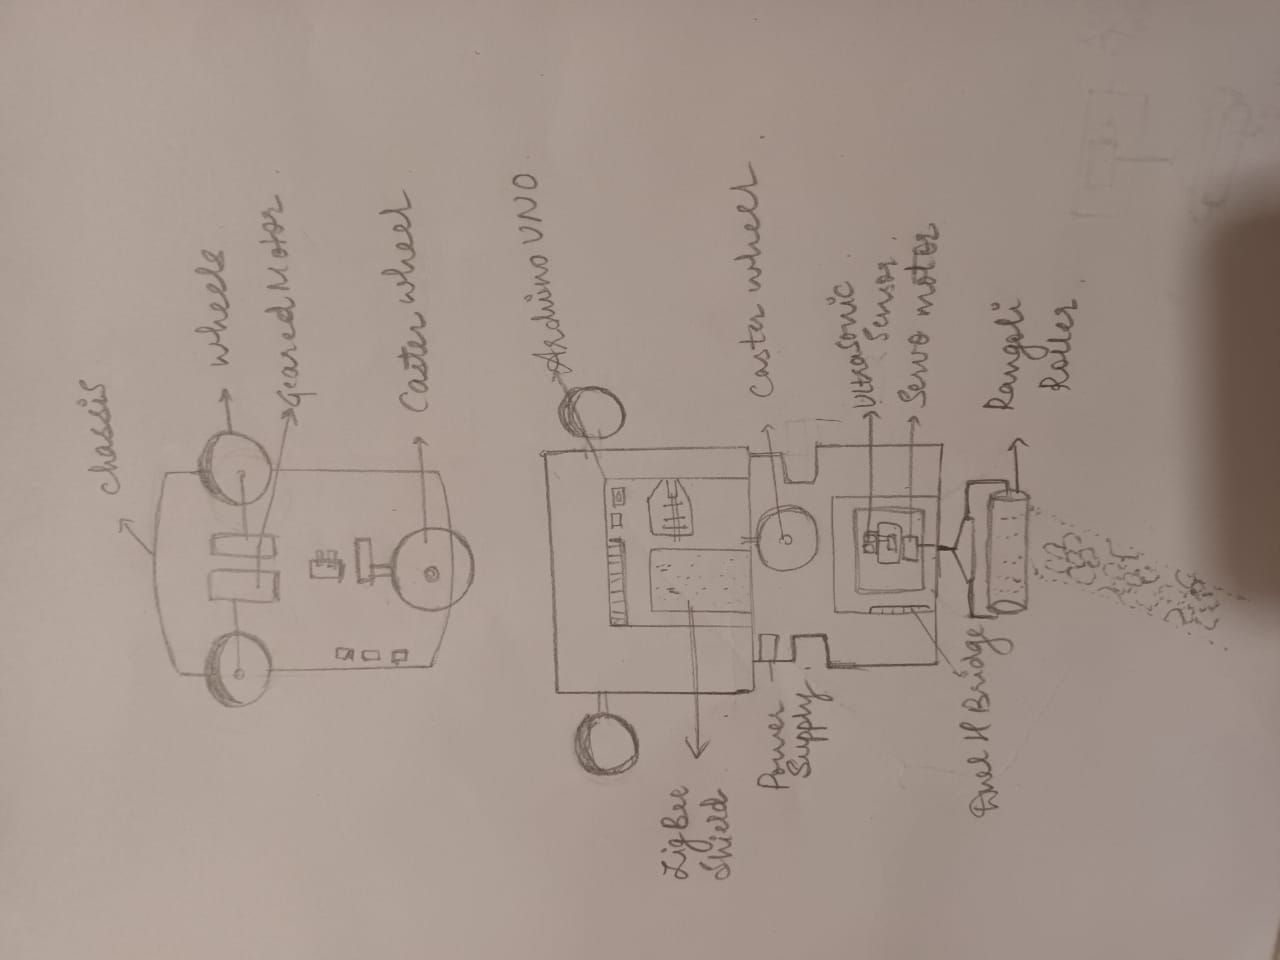 Chassis
Wheels
Geared Motor
Caster wheel
Arduino UNO
Caster wheel
Ultrasonic
Sensor
Servo motor
Rangoli
Roller
ZigBee
Shield
Power
Supply
Duel H Bridge